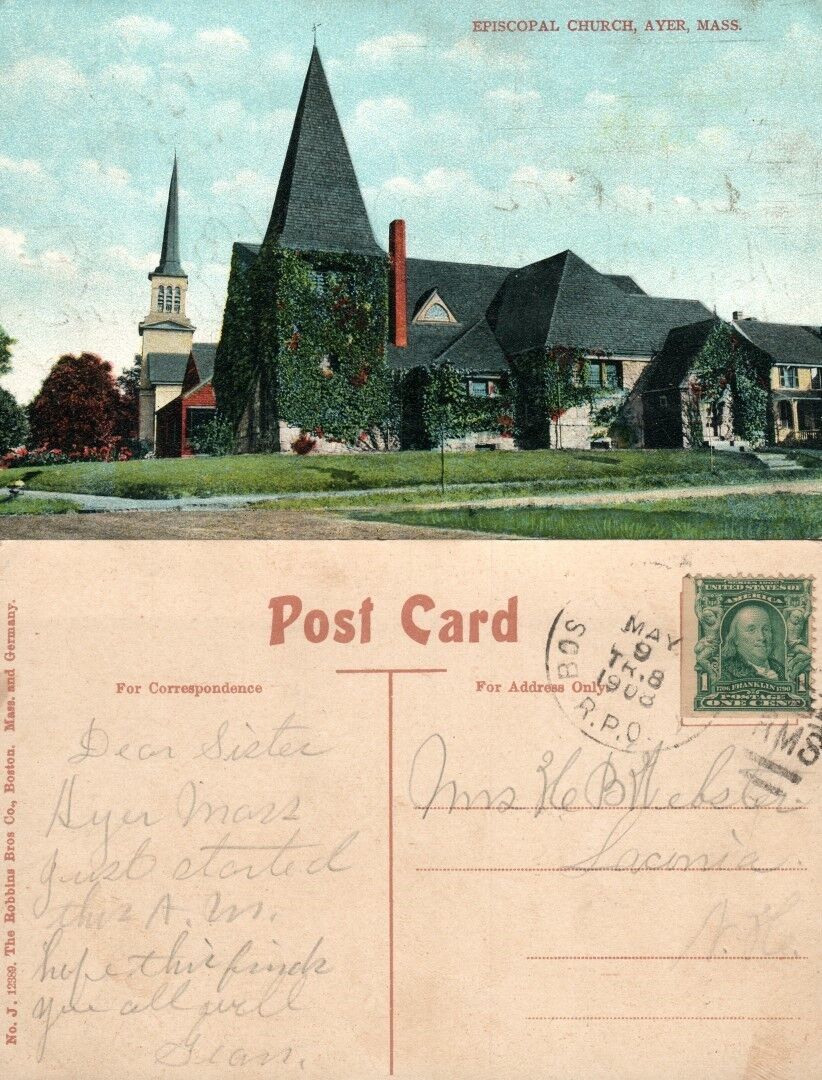 EPISCOPAL CHURCH, AYER, MASS.
Post Card
For Correspondence
For Address Only
No. J. 12389. The Robbins Bros Co., Boston. Mass. and Germany.
BOS
MAY
9
TR.8
1908
R.P.O.
RMS
SERIES 1902
UNITED STATES OF
AMERICA
1706 FRANKLIN 1790
1 1
POSTAGE
ONE CENT
Dear Sister
Ayer Mass
just started
this A. M.
hope this finds
you all well
Mrs H B Webster
Laconia
N. H.